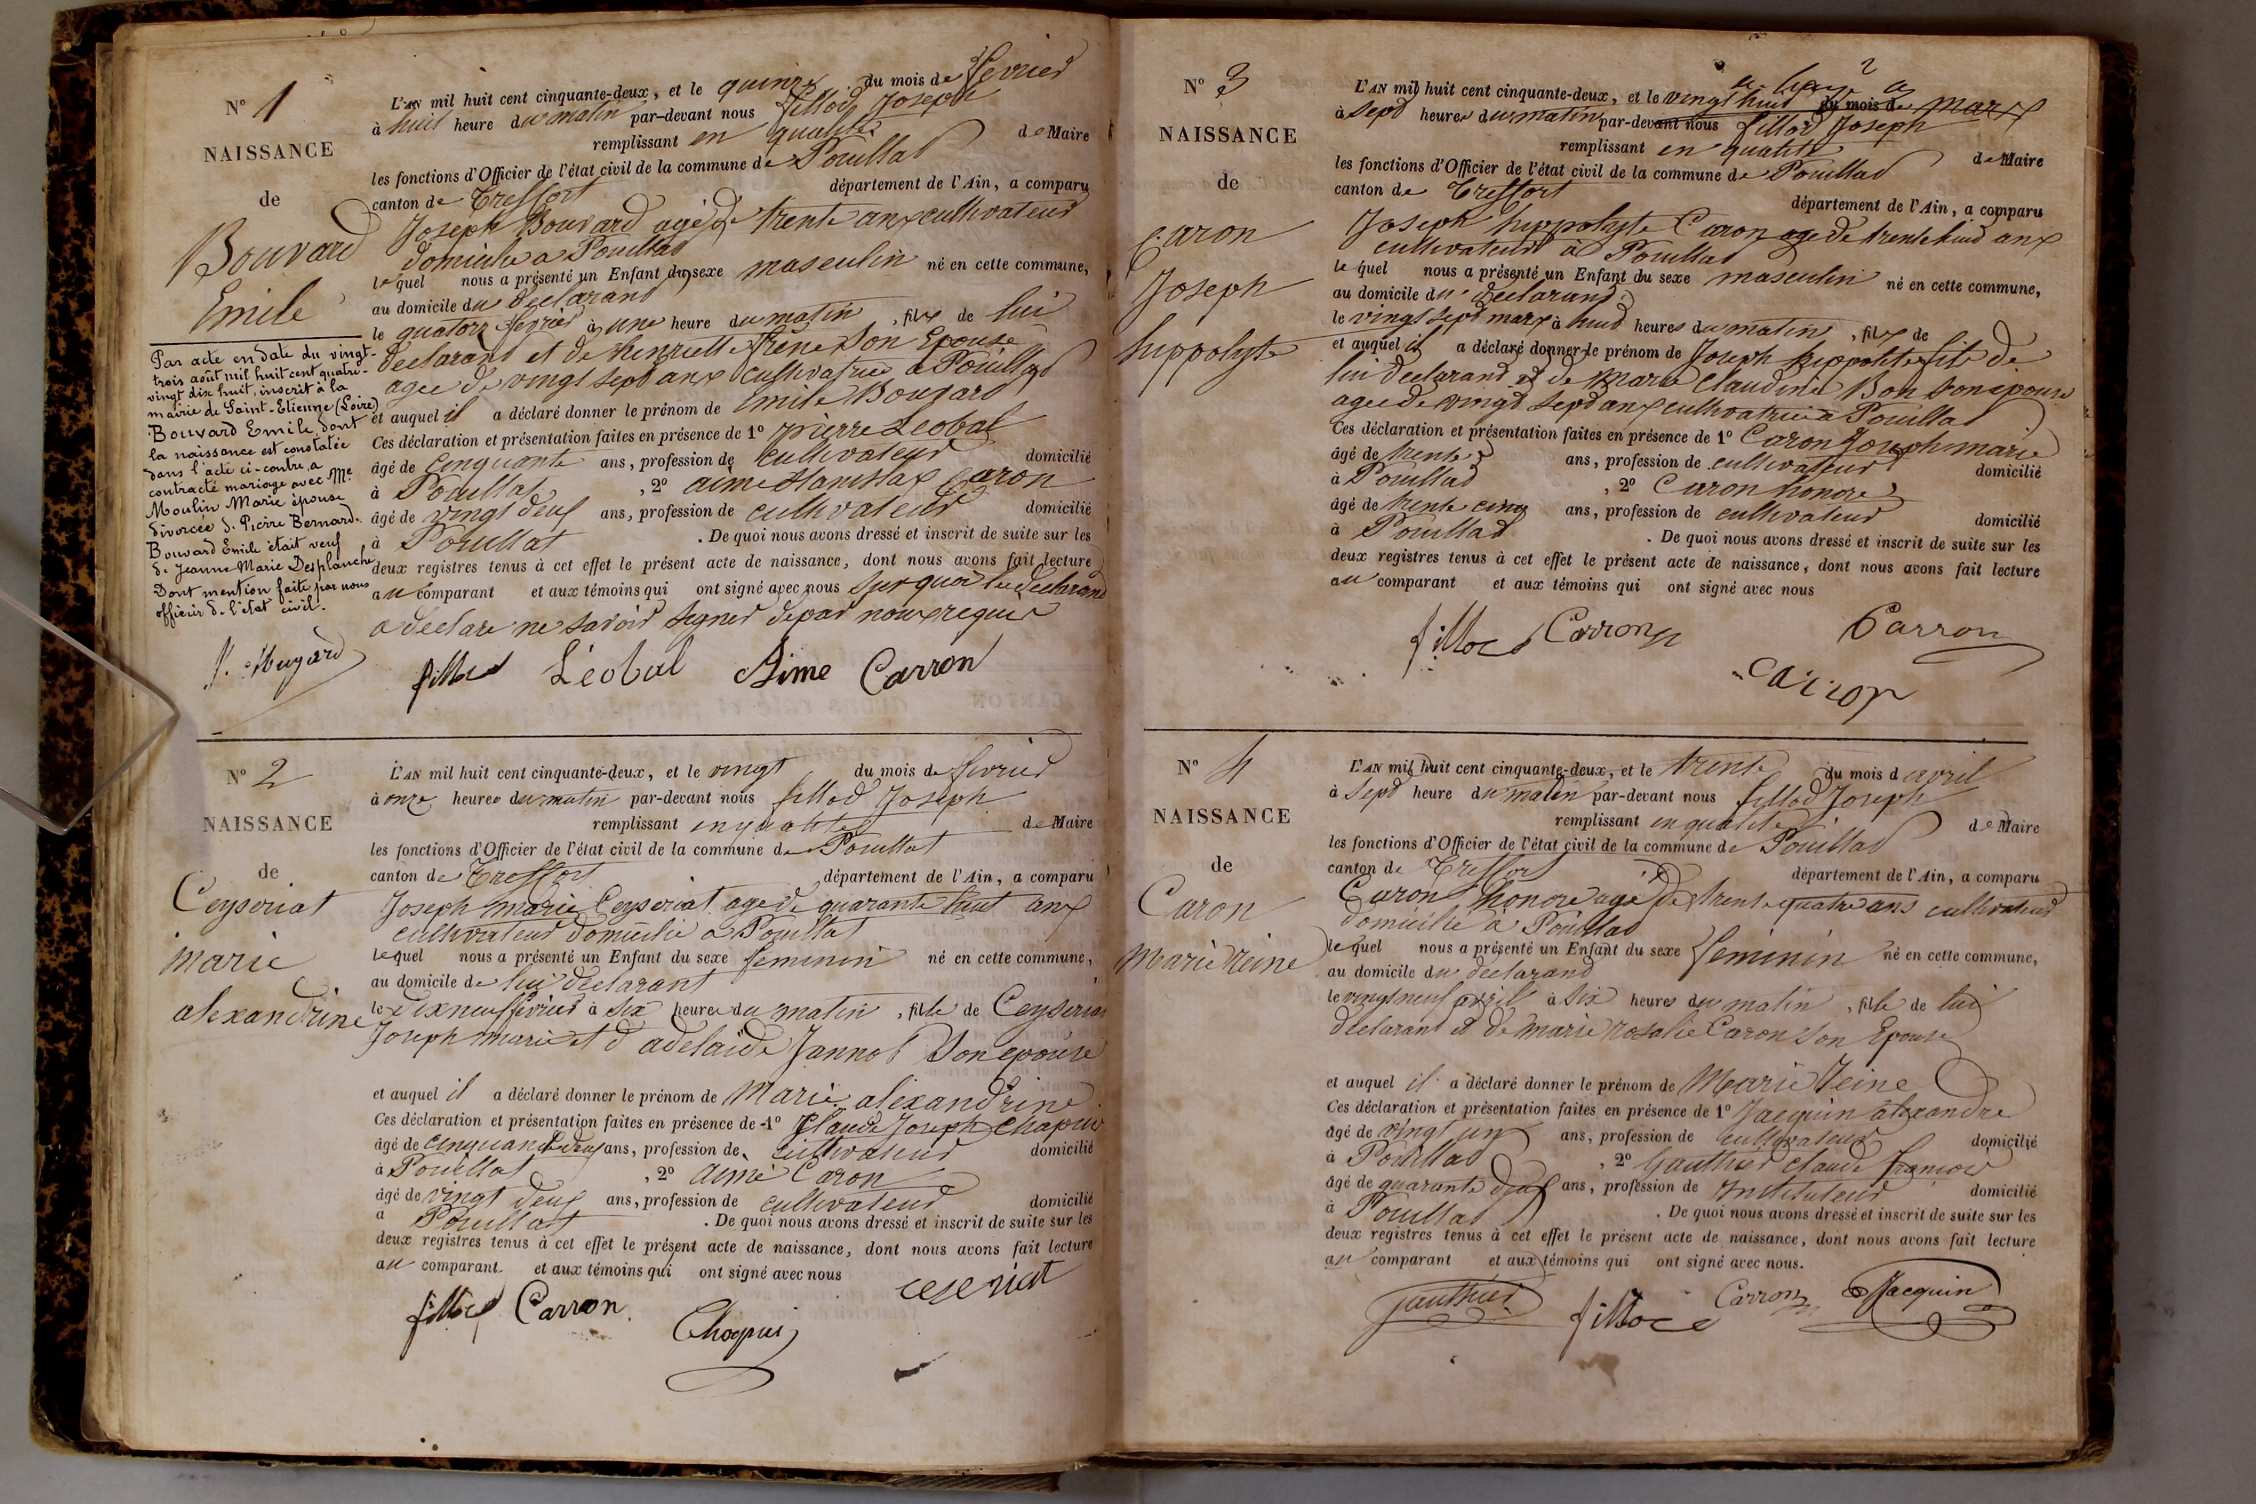 N° 1
NAISSANCE
de
Bouvard
Emile
Par acte en date du vingt-
trois août mil huit cent quatre-
vingt dix huit, inscrit à la
mairie de Saint-Etienne (Loire)
Bouvard Emile dont
la naissance est constatée
dans l'acte ci-contre, a
contracté mariage avec Me
Moulin Marie épouse
divorcée de Pierre Bernard.
Bouvard Emile était veuf
de Jeanne Marie Desplanche
Dont mention faite par nous
officier de l'état civil.
L'AN mil huit cent cinquante-deux, et le quinze du mois de fevrier
à huit heure du matin par-devant nous fillod Joseph
remplissant en qualité de Maire
les fonctions d'Officier de l'état civil de la commune de Pouillat
canton de Treffort département de l'Ain, a comparu
Joseph Bouvard agé de trente anx cultivateur
domicilié a Pouillat
lequel nous a présenté un Enfant du sexe masculin né en cette commune,
au domicile du declarant
le quatorz fevrier à une heure du matin, fils de lui
declarant et de henriette frene son Epouse
agee de vingt sept anx cultivatrice a Pouillat
et auquel il a déclaré donner le prénom de Emile Bouvard
Ces déclaration et présentation faites en présence de 1° pierre Leobal
âgé de cinquante ans, profession de cultivateur domicilié
à Pouillat, 2° aimé Stanislas Caron
âgé de vingt deux ans, profession de cultivateur domicilié
à Pouillat. De quoi nous avons dressé et inscrit de suite sur les
deux registres tenus à cet effet le présent acte de naissance, dont nous avons fait lecture
au comparant et aux témoins qui ont signé avec nous sur quoi le declarant
a declare ne savoir signer de par noux requis
fillod Léobal Aime Carron
N° 2
NAISSANCE
de
Ceyseriat
marie
alexandrine
L'AN mil huit cent cinquante-deux, et le vingt du mois de fevrier
à onze heures du matin par-devant nous fillod Joseph
remplissant en qualité de Maire
les fonctions d'Officier de l'état civil de la commune de Pouillat
canton de Treffort département de l'Ain, a comparu
Joseph marie Ceyseriat age de quarante huit anx
cultivateur domicilié a Pouillat
lequel nous a présenté un Enfant du sexe feminin né en cette commune,
au domicile de lui declarant
le dixneuf fevrier à six heures du matin, fille de Ceyseriat
Joseph marie et d adelaide Jannot son epouse
et auquel il a déclaré donner le prénom de Marie alexandrine
Ces déclaration et présentation faites en présence de 1° Claude Joseph Chapuis
âgé de cinquante deux ans, profession de cultivateur domicilié
à Pouillat, 2° aimé Caron
âgé de vingt deux ans, profession de cultivateur domicilié
a Pouillat. De quoi nous avons dressé et inscrit de suite sur les
deux registres tenus à cet effet le présent acte de naissance, dont nous avons fait lecture
au comparant et aux témoins qui ont signé avec nous
ceseriat
fillod Carron
Chapuis
N° 3
NAISSANCE
de
Caron
Joseph
hippolyte
L'AN mil huit cent cinquante-deux, et le vingt huit du mois de marx
à sept heures du matin par-devant nous fillod Joseph
remplissant en qualité de Maire
les fonctions d'Officier de l'état civil de la commune de Pouillat
canton de Treffort département de l'Ain, a comparu
Joseph hippolyte Caron age de trente huit anx
cultivateur à Pouillat
lequel nous a présenté un Enfant du sexe masculin né en cette commune,
au domicile du declarant
le vingt sept marx à huit heures du matin, fils de
et auquel il a déclaré donner le prénom de Joseph hippolite fils de
lui declarant et de Marie Claudine Bon son epouse
agee de vingt sept anx cultivatrice a Pouillat
Ces déclaration et présentation faites en présence de 1° Caron Joseph marie
âgé de trente ans, profession de cultivateur domicilié
à Pouillat, 2° Caron honore
âgé de trente cinq ans, profession de cultivateur domicilié
à Pouillat. De quoi nous avons dressé et inscrit de suite sur les
deux registres tenus à cet effet le présent acte de naissance, dont nous avons fait lecture
au comparant et aux témoins qui ont signé avec nous
fillod Carron Carron
Carron
N° 4
NAISSANCE
de
Caron
Marie Reine
L'AN mil huit cent cinquante-deux, et le trente du mois d avril
à sept heure du matin par-devant nous fillod Joseph
remplissant en qualite de Maire
les fonctions d'Officier de l'état civil de la commune de Pouillat
canton de Treffort département de l'Ain, a comparu
Caron honore agé de trente quatre ans cultivateur
domicilié à Pouillat
lequel nous a présenté un Enfant du sexe feminin né en cette commune,
au domicile du declarant
le vingt neuf avril à six heures du matin, fille de lui
declarant et de marie rosalie Caron son Epouse
et auquel il a déclaré donner le prénom de Marie Reine
Ces déclaration et présentation faites en présence de 1° Jacquin alexandre
âgé de vingt un ans, profession de cultivateur domicilié
à Pouillat, 2° Gauthier claude francois
âgé de quarante deux ans, profession de Instituteur domicilié
à Pouillat. De quoi nous avons dressé et inscrit de suite sur les
deux registres tenus à cet effet le présent acte de naissance, dont nous avons fait lecture
au comparant et aux témoins qui ont signé avec nous.
Gauthier fillod Carron Jacquin